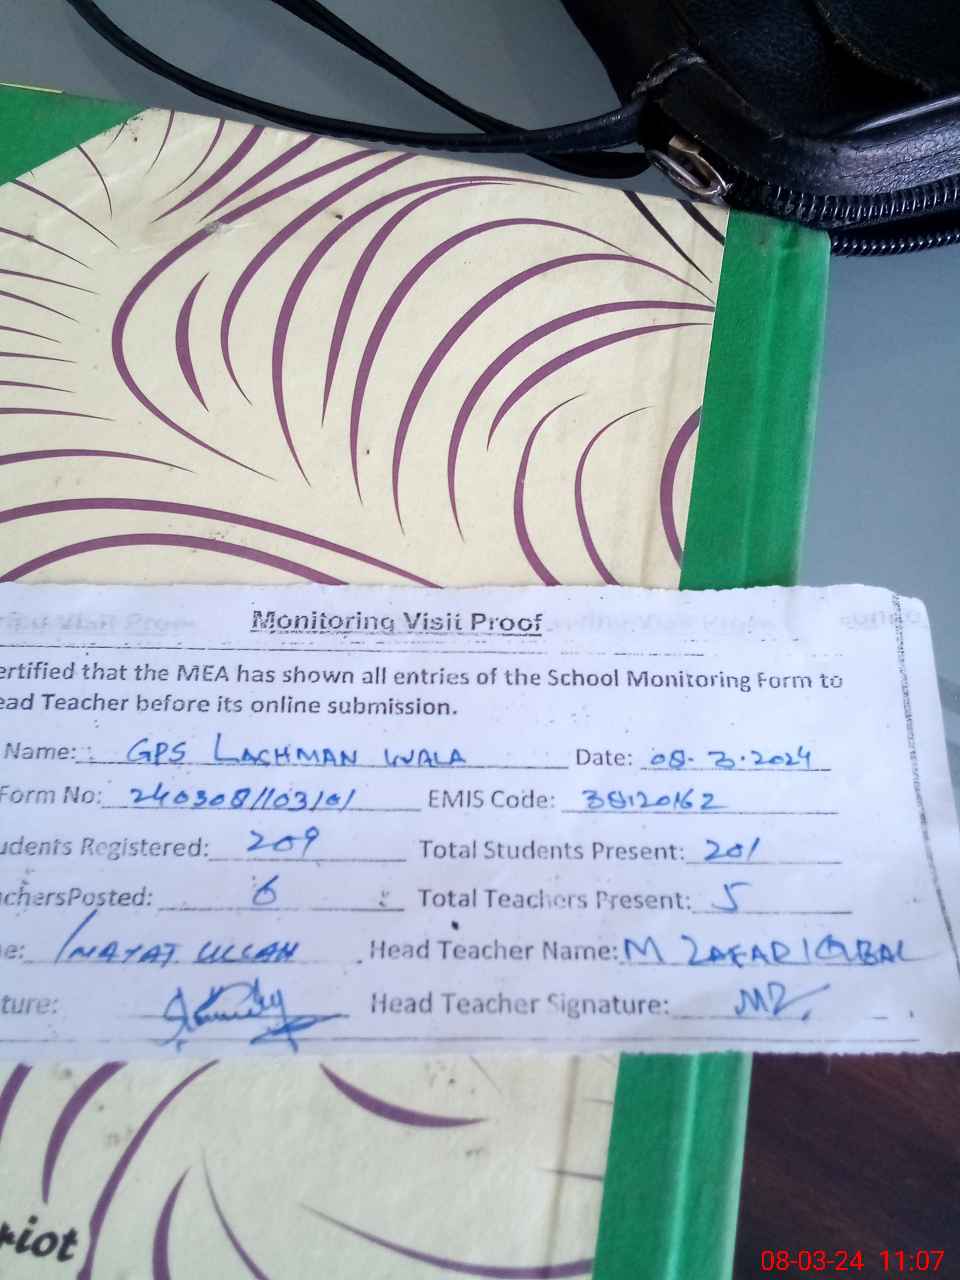 Monitoring Visit Proof
ertified that the MEA has shown all entries of the School Monitoring Form to
ead Teacher before its online submission.
Name: GPS LACHMAN WALA Date: 08.3.2024
Form No: 240308110310 EMIS Code: 38120162
udents Registered: 209 Total Students Present: 201
chersPosted: 6 Total Teachers Present: 5
e: INAYAT ULLAH Head Teacher Name: M ZAFAR IQBAL
ture: Head Teacher Signature: MZ
riot
08-03-24 11:07